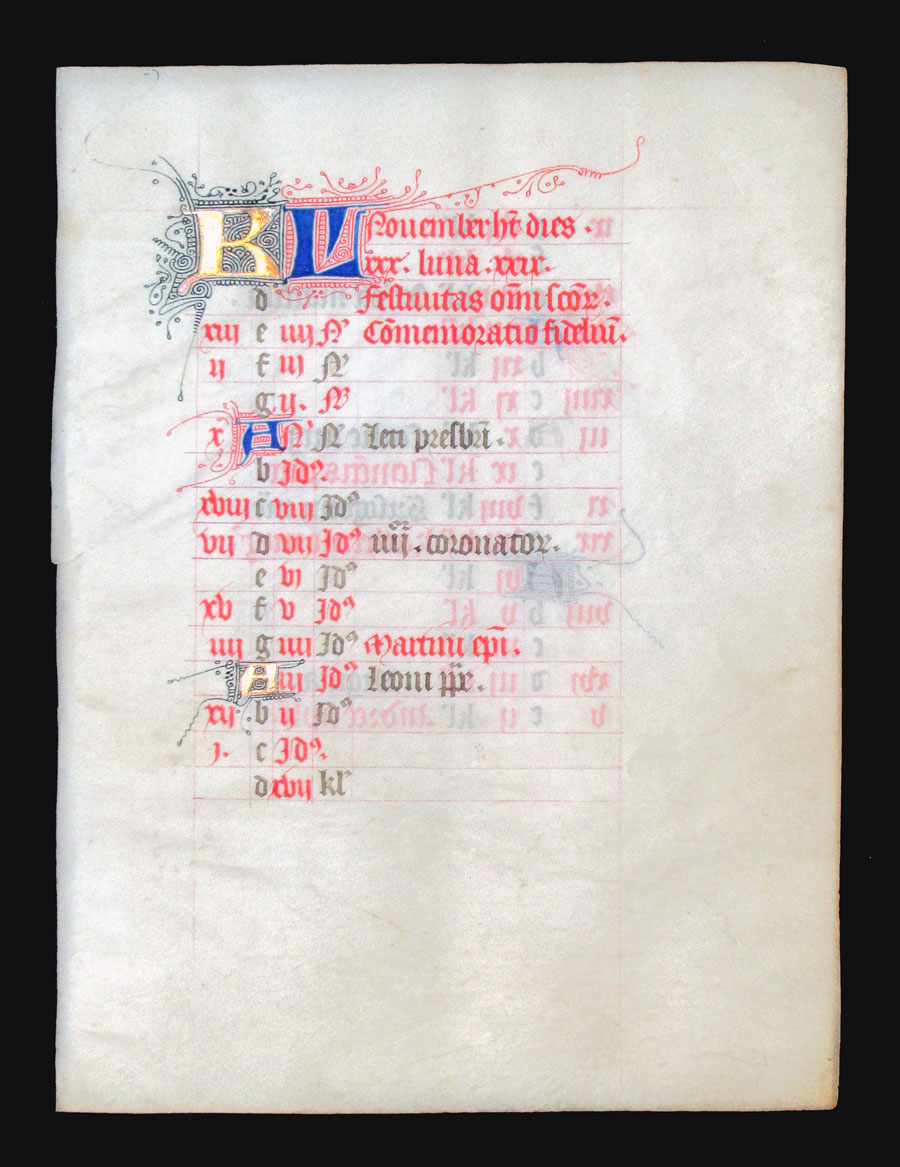 KL Nouember ht̄ dies .
xxx . luna .xxix.
d Festiuitas om̄i scōr.
xiij e iiij Nˀ Cōmemoratio fideliū.
ij f iij Nˀ
g ij. Nˀ
x A Nˀ Nˀ Leti presbrı̄ .
b Idꝰ.
xviij c viij Idꝰ
vij d vij Idꝰ iiij . coronator.
e vj Idꝰ
xv f v Idꝰ
iiij g iiij Idꝰ Martini ep̄i .
A iij Idꝰ Leoni pp̄e .
xij b ij Idꝰ
j. c Idꝰ.
d xvij klˀ